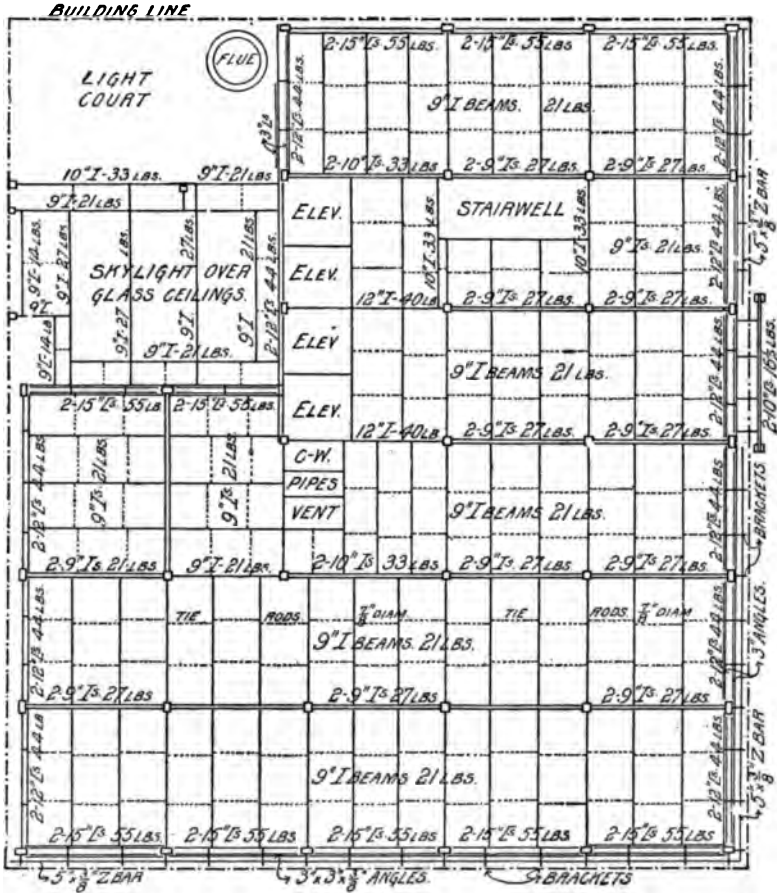 BUILDING LINE
FLUE
LIGHT
COURT
2-15"[s. 55 LBS.
2-15"[s. 55 LBS.
2-15"[s. 55 LBS.
2-12"[s 44 LBS.
9" I BEAMS. 21 LBS.
2-12"[s 44 LBS.
2-10" Is. 33 LBS.
2-9" Is. 27 LBS.
2-9" Is 27 LBS.
10" I-33 LBS.
9" I-21 LBS
9" I-21 LBS
ELEV.
ELEV.
ELEV
ELEV.
STAIRWELL
10" I-33 LBS
10" I-33 LBS.
9" Is. 21 LBS.
2-12"[s 44 LBS.
5" x 3/8" Z BAR
9" I-14 LBS.
9" I-27 LBS.
SKYLIGHT OVER
GLASS CEILINGS.
9" I-27 LBS.
9" I 27 LBS.
9" I 21 LBS
2-12"[s 44 LBS.
9" I.
9" I-14 LB
9" I-21 LBS.
12" I-40 LB
2-9" Is. 27 LBS
2-9" Is. 27 LBS.
9" I BEAMS 21 LBS.
2-12"[s. 44 LBS.
12" I-40 LB
2-9" Is. 27 LBS.
2-9" Is. 27 LBS.
2-15"[s. 55 LB
2-15"[s. 55 LBS.
2-12"[s 44 LBS.
9" Is. 21 LBS.
9" Is. 21 LBS.
C-W.
PIPES
VENT
9" I BEAMS 21 LBS.
2-12"[s 44 LBS
BRACKETS
2-9" Is. 21 LBS
9" I-21 LBS.
2-10" Is 33 LBS.
2-9" Is. 27 LBS.
2-9" Is. 27 LBS.
2-12"[s 44 LBS.
TIE RODS 7/8" DIAM TIE RODS 7/8" DIAM
9" I BEAMS. 21 LBS.
2-12"[s 44 LBS.
3" ANGLES.
2-9" Is. 27 LBS
2-9" Is. 27 LBS
2-9" Is. 27 LBS
2-12"[s 44 LB
9" I BEAMS 21 LBS.
2-12"[s 44 LBS
5" x 3/8" Z BAR
2-15"[s 55 LBS
2-15"[s 55 LBS
2-15"[s. 55 LBS
2-15"[s 55 LBS
2-15"[s 55 LBS
5" x 3/8" Z BAR
3" x 3" x 3/8" ANGLES.
BRACKETS